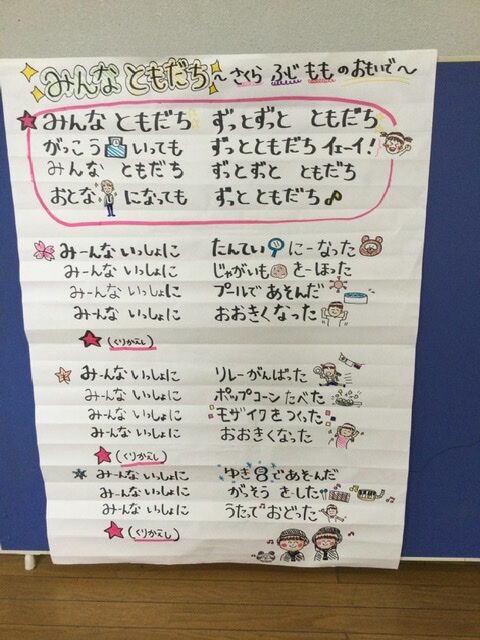 みんな ともだち 〜 さくら ふじ もも の おもいで〜
★ みんな ともだち ずっとずっと ともだち
がっこう いっても ずっとともだち イェーイ!
みんな ともだち ずっとずっと ともだち
おとな になっても ずっと ともだち♪
みーんな いっしょに たんてい にーなった
みーんな いっしょに じゃがいも をーほった
みーんな いっしょに プールで あそんだ
みーんな いっしょに おおきくなった
★ (くりかえし)
みーんな いっしょに リレーがんばった
みーんな いっしょに ポップコーン たべた
みーんな いっしょに モザイクをつくった
みーんな いっしょに おおきくなった
★ (くりかえし)
みーんな いっしょに ゆき であそーんだ
みーんな いっしょに がっそう をーした
みーんな いっしょに うたで おどった
★ (くりかえし)